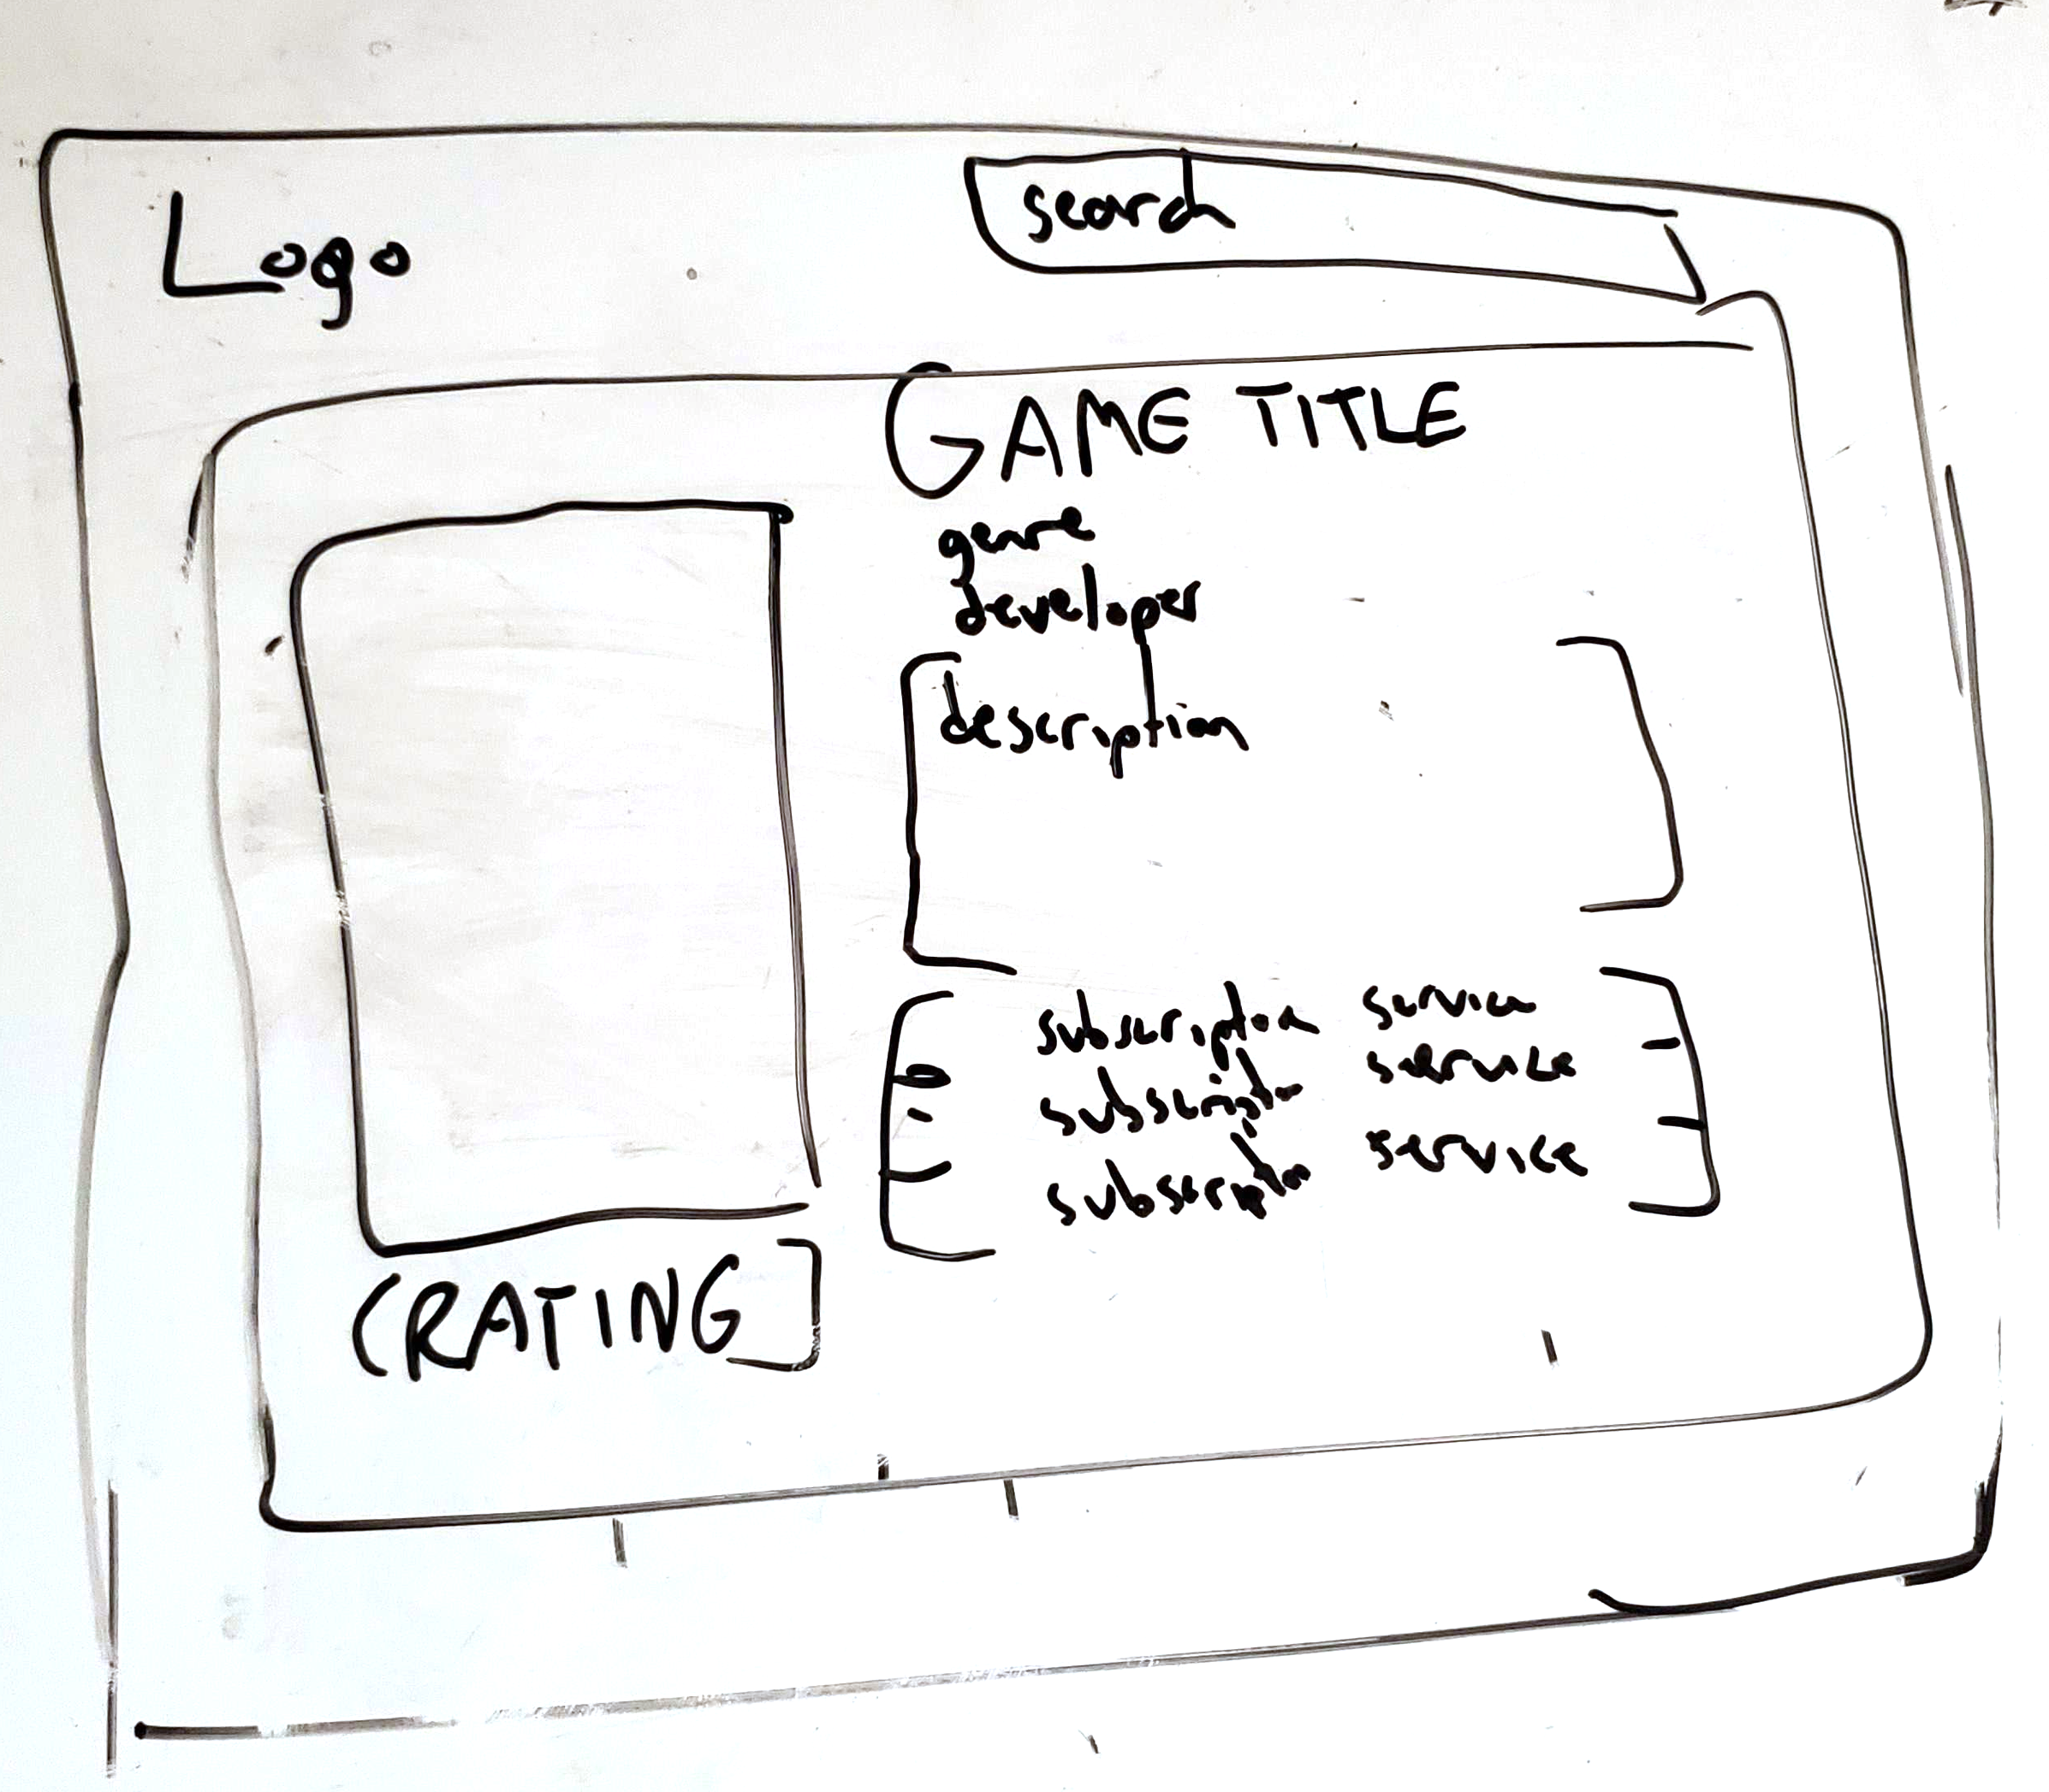 Logo
search
GAME TITLE
genre
developer
description
subscription service
subscription service
subscription service
(RATING]